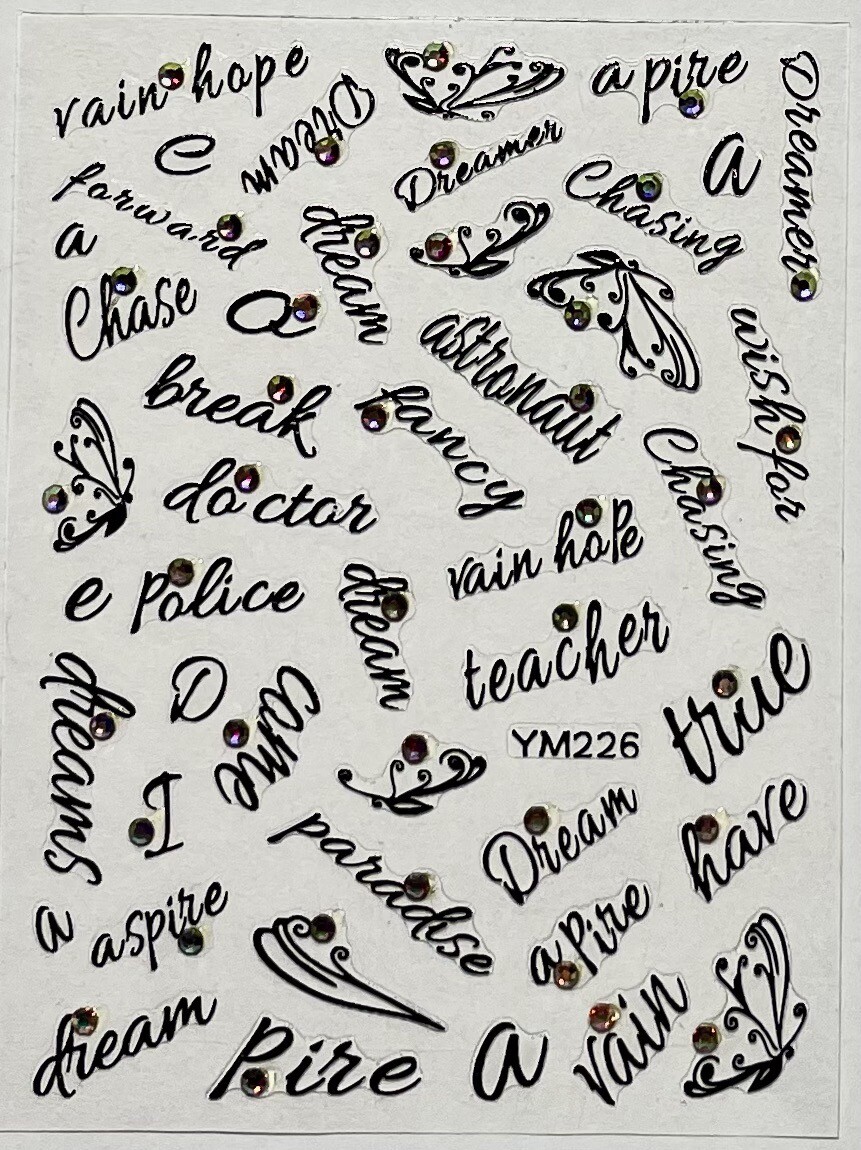 vain hope
a pire
Dreamer
Dream
e
Dreamer
a
forward
Chasing
a
dream
Chase
a
astronaut
wish for
break
fancy
Chasing
doctor
vain hope
e
Police
dream
teacher
dreams
D
came
true
YM226
I
Dream
have
paradise
a
aspire
a Pire
dream
Pire
a
vain